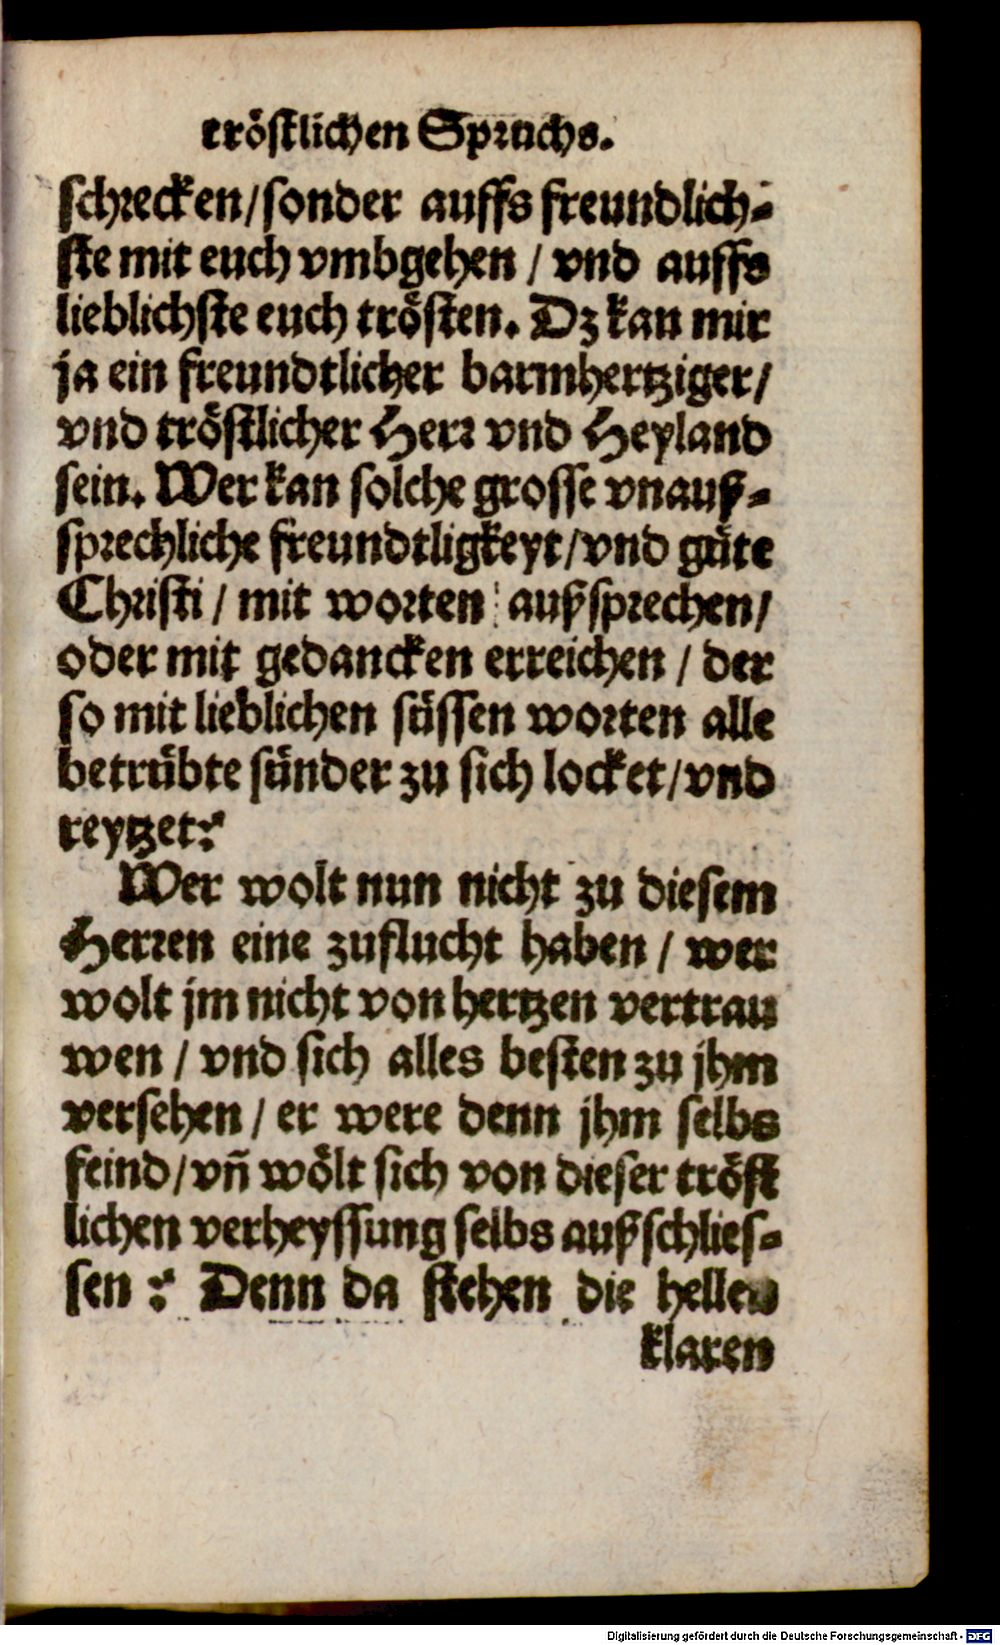 tröstlichen Spruchs.
schrecken/sonder auffs freundlich-
ste mit euch vmbgehen / vnd auffs
lieblichste euch trösten. Dz kan mir
ja ein freundtlicher barmhertziger/
vnd tröstlicher Herr vnd Heyland
sein. Wer kan solche grosse vnauß-
sprechliche freundtligkeyt/vnd güte
Christi / mit worten außsprechen/
oder mit gedancken erreichen / der
so mit lieblichen süssen worten alle
betrübte sünder zu sich locket/vnd
reytzet?
Wer wolt nun nicht zu diesem
Herren eine zuflucht haben / wer
wolt jm nicht von hertzen vertrau
wen / vnd sich alles besten zu jhm
versehen / er were denn jhm selbs
feind/vñ wölt sich von dieser tröst
lichen verheyssung selbs außschlies-
sen ? Denn da stehen die hellen
klaren
Digitalisierung gefördert durch die Deutsche Forschungsgemeinschaft - DFG